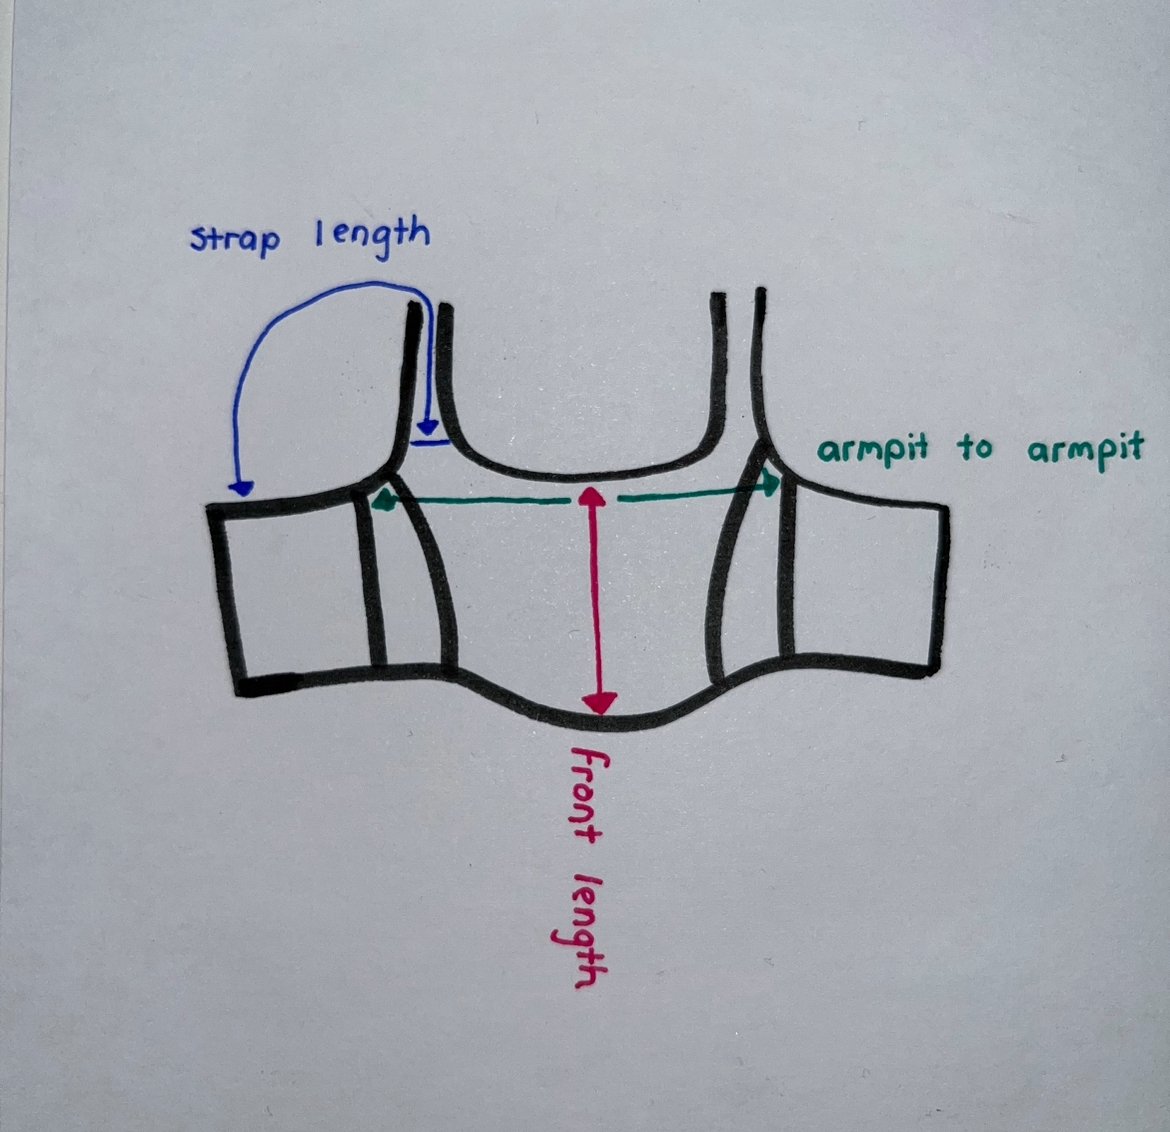 strap length
armpit to armpit
front length